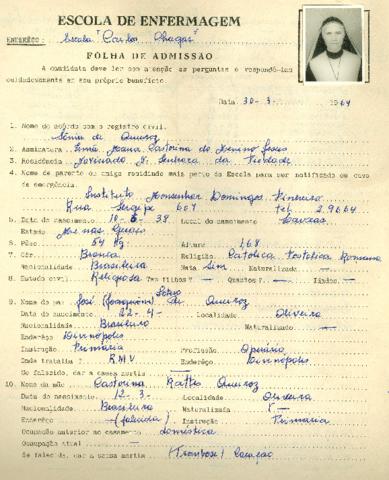 ESCOLA DE ENFERMAGEM
ENDERÊÇO: Escola "Carlos Chagas"
FÔLHA DE ADMISSÃO
A candidata deve ler com atenção as perguntas e respondê-las
cuidadosamente em seu próprio benefício.
Data 30-3 1964
1. Nome de acôrdo com o registro civil.
Sônia de Queiroz
2. Assinatura Irmã Joana Castorina do Menino Jesus
3. Residência Noviciado N. Senhora da Piedade
4. Nome de parente ou amigo residindo mais perto da Escola para ser notificado em caso
de emergência.
Instituto Monsenhor Domingos Pinheiro
Rua Sergipe Tel. 2.9664
5. Data do nascimento 10-5-38 Local do nascimento
Estado Minas Gerais
6. Pêso 54 Kg Altura 1,68
7. Côr Branca Religião Católica Apostólica Romana
Nacionalidade Brasileira Nata Sim Naturalizada —
8. Estado civil Religiosa Tem filhos? — Quantos? — Idades —
9. Nome do pai José de Queiroz
Data do nascimento 22-4- Localidade Oliveira
Nacionalidade Brasileiro Naturalizado —
Enderêço Divinópolis
Instrução Primária Profissão Operário
Onde trabalha? R.M.V. Enderêço Divinópolis
Se falecido, dar a causa mortis —
10. Nome da mãe Castorina Queiroz
Data do nascimento 12-3- Localidade Oliveira
Nacionalidade Brasileira Naturalizada —
Enderêço — (falecida) Instrução Primária
Ocupação anterior ao casamento doméstica
Ocupação atual —
Se falecida, dar a causa mortis (Trombose) Coração